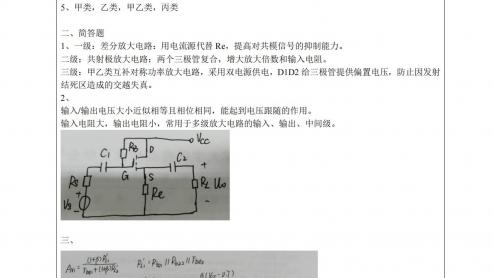 5、甲类，乙类，甲乙类，丙类
二、简答题
1、一级：差分放大电路：用电流源代替 Re，提高对共模信号的抑制能力。
二级：共射极放大电路：两个三极管复合，增大放大倍数和输入电阻。
三级：甲乙类互补对称功率放大电路，采用双电源供电，D1D2 给三极管提供偏置电压，防止因发射
结死区造成的交越失真。
2、
输入/输出电压大小近似相等且相位相同，能起到电压跟随的作用。
输入电阻大，输出电阻小，常用于多级放大电路的输入、输出、中间级。
VCC
D
C1
C2
G
S
Re
RL
三、